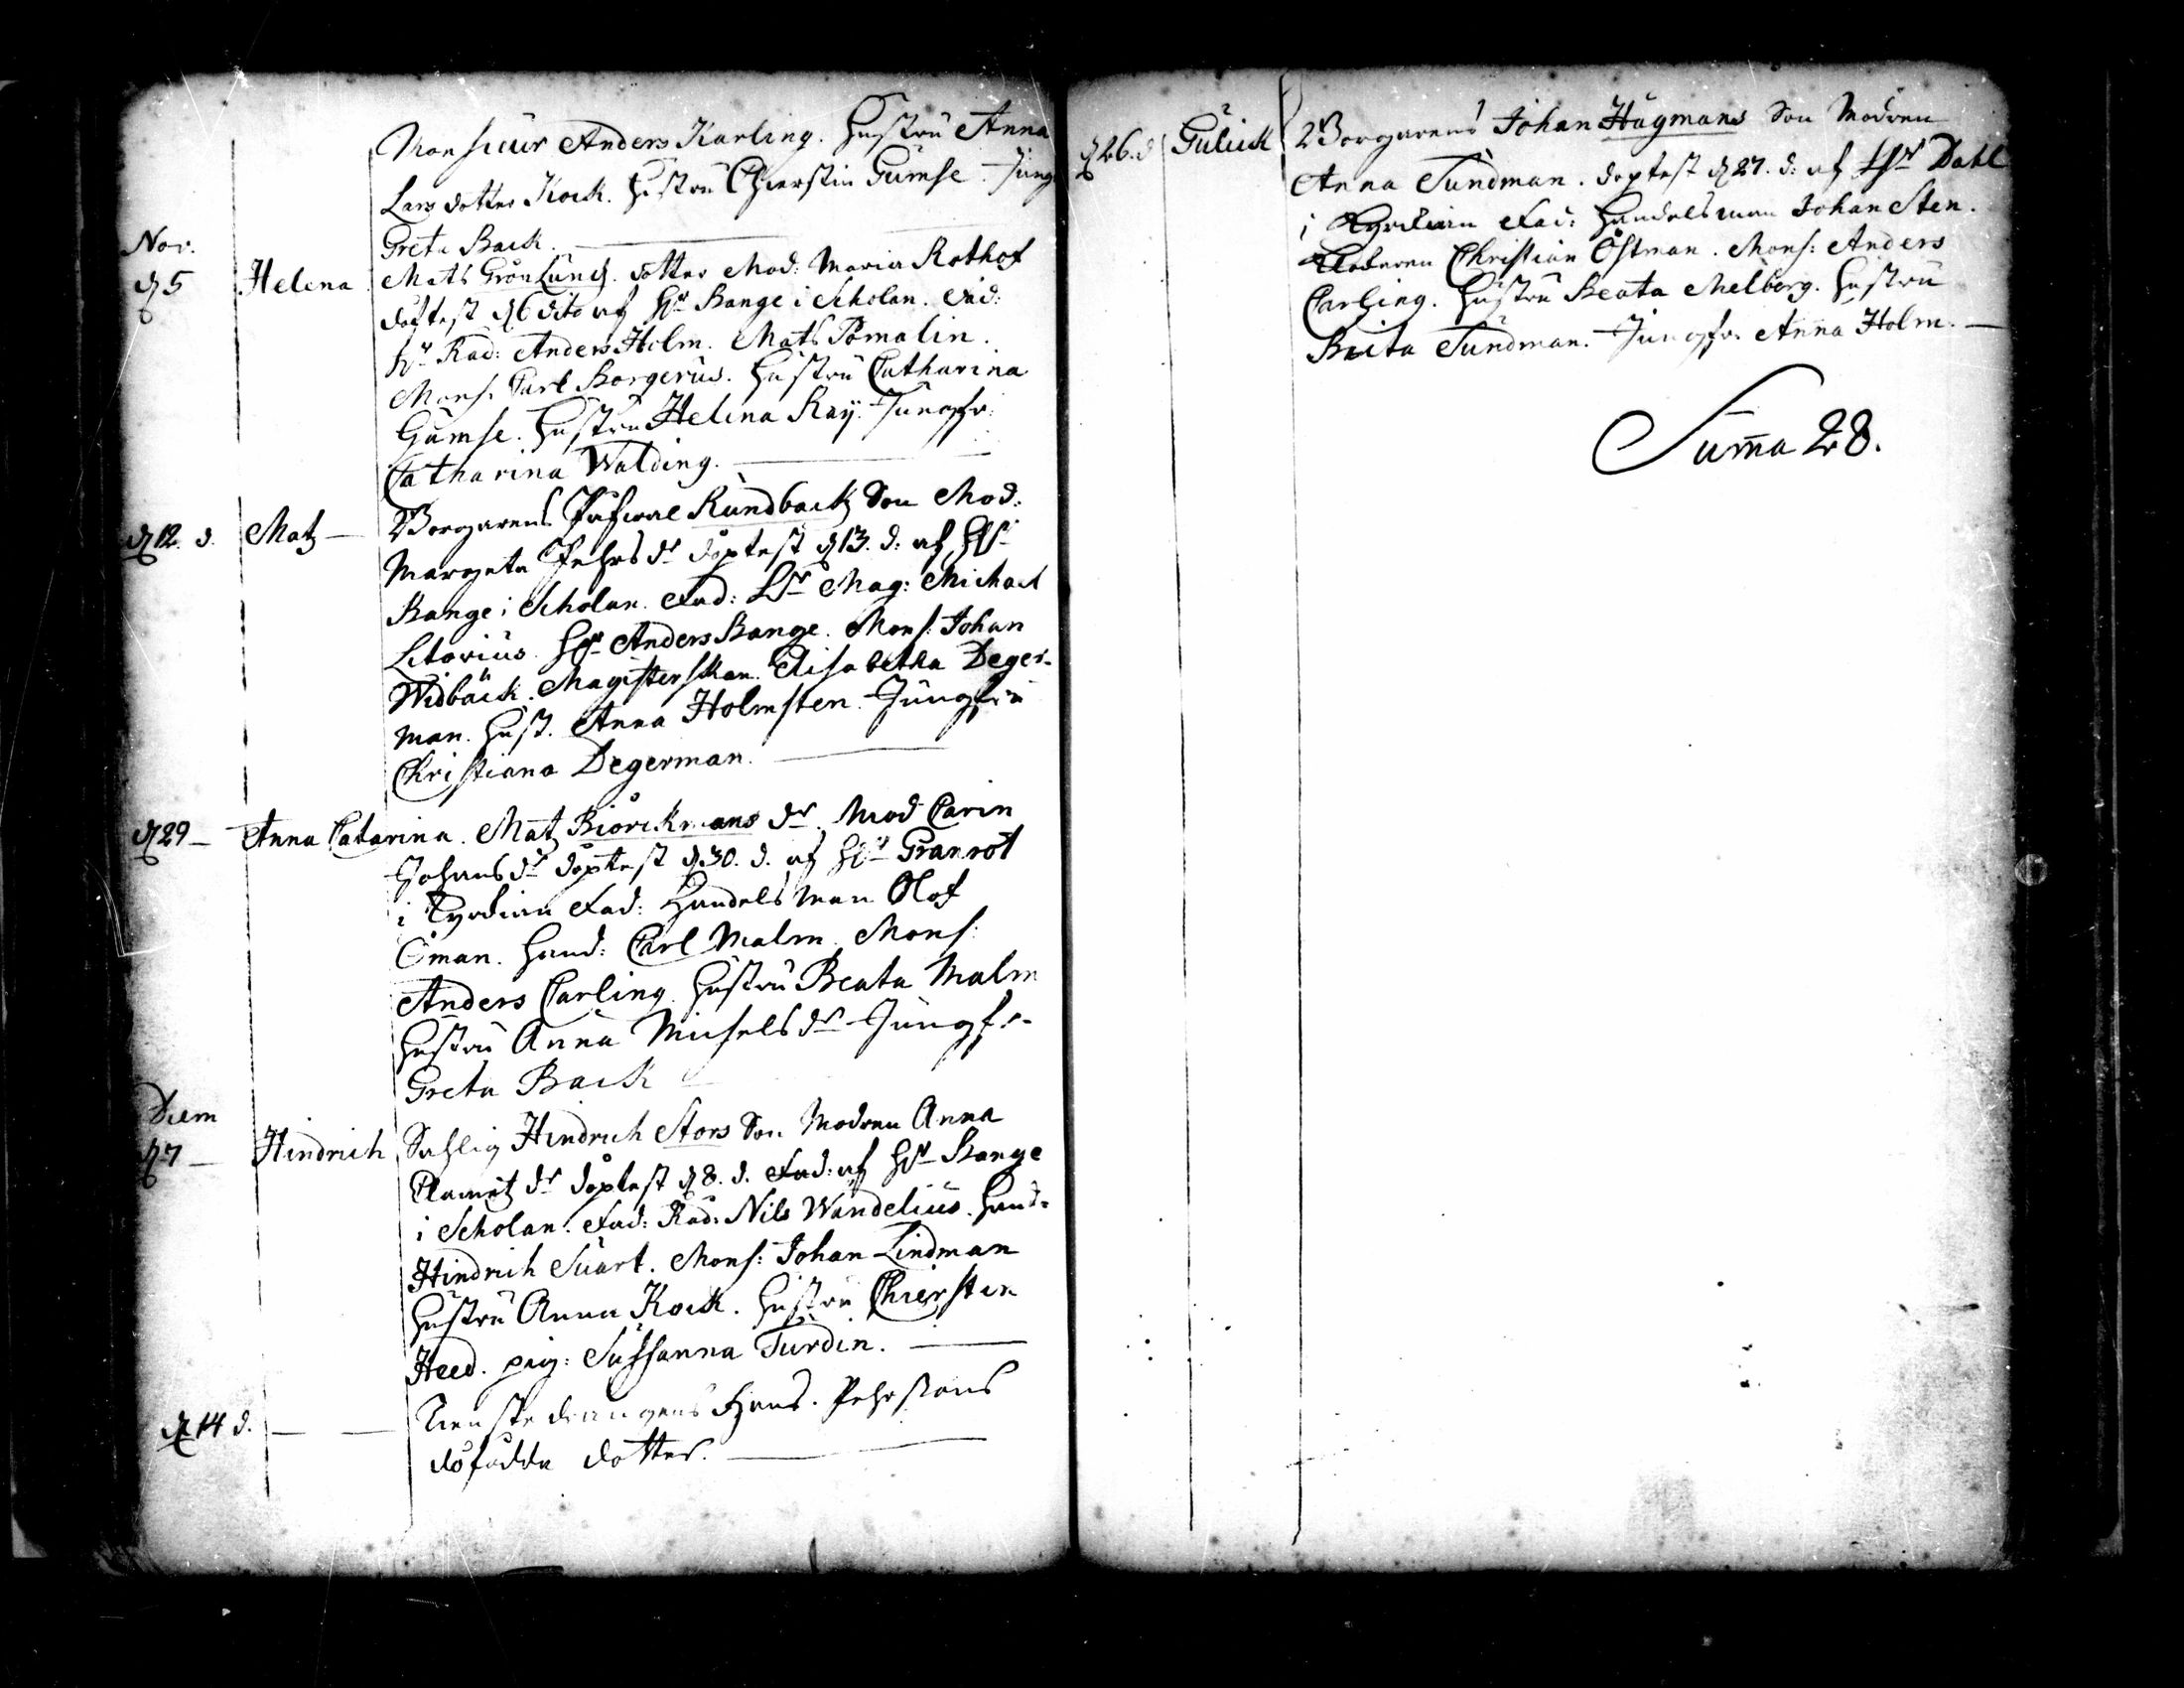 Monsieur Anders Karling. Hustru Anna
Lars dotter Kock. Hustru Chierstin Gumse. Jungf
Greta Back.
Nov.
d 5 Helena Mats Grönlund. dotter Mod: Maria Rothof
döptest d 6 dito af Hr Bange i Scholan. Fad:
Hr Råd: Anders Holm. Mats Tomalin.
Mons. Carl Borgerus. Hustru Catharina
Gumse. Hustru Helena Ray. Jungfr:
Catharina Walding.
d 12. d. Matz Borgarens Pafwal Rundback Son Mod:
Margeta Pehrs dr döptest d 13. d: af Hr
Bange i Scholan. Fad: Hr Mag: Michael
Litovius. Hr Anders Bange. Mons: Johan
Widbäck. Magisterskan Elisabetha Deger-
man. Hust. Anna Holmsten. Jungfru
Christiana Degerman.
d 29 Anna Catarina. Matz Biörckmans dr. Mod Carin
Johans dr döptest d 30. d. af Hr Granrot
i Kyrckian Fad: Handelsman Olof
Öman. Hand: Carl Malm. Mons:
Anders Carling. Hustru Beata Malm
Hustru Anna Michels dr Jungfr
Greta Back
Decem
d 7 Hindrich Sahlig Hindrich Stors Son Modren Anna
Clametz dr döptest d 8. d. Fad: af Hr Bange
i Scholan. Fad: Råd: Nils Wandelius. Hand:
Hindrich Suart. Mons: Johan Lindman
Hustru Anna Kock. Hustru Chierstin
Heed. pig: Sussanna Turdin.
d 14 d. Tienste drängens Hans. Pehrssons
döfödda dotter.
d 26. d Gulick Borgarens Johan Hågmans Son Modren
Anna Sundman. döptest d 27. d: af Hr Dahl
i Kyrckian Fad: Handelsman Johan Sten.
Christian Östman. Mons: Anders
Carling. Hustru Beata Melberg. Hustru
Brita Sundman. Jungfr. Anna Holm.
Summa 28.